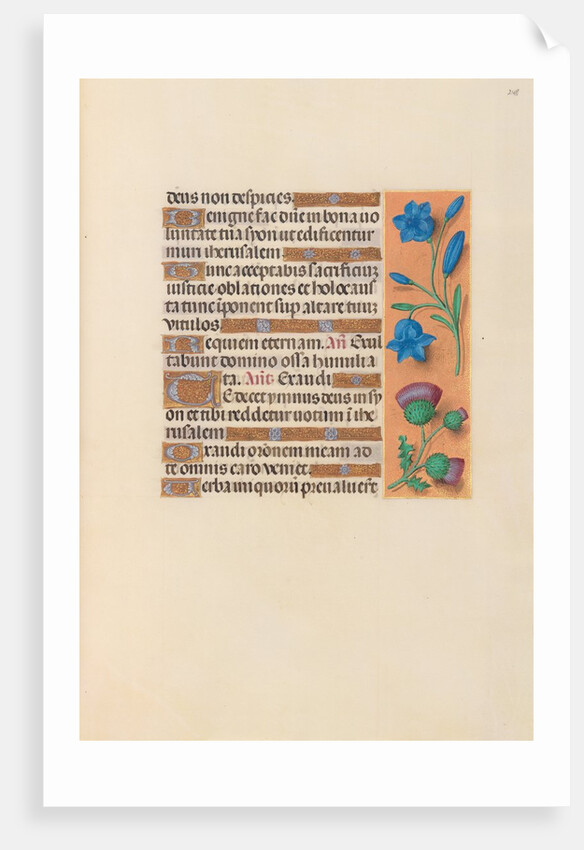 248
deus non despicies.
Benigne fac dn̄e in bona uo
luntate tua syon ut edificentur
muri iherusalem.
Tunc acceptabis sacrificiuꝫ
iusticie oblationes et holocaus
ta tunc īponent sup altare tuuꝫ
vitulos.
Requiem eternam. An̄ Exul
tabunt domino ossa humilia
ta. Ant̄ Exaudi
Te decet ymnus deus in sy
on et tibi reddetur uotum ī ihe
rusalem
Exaudi orōnem meam ad
te omnis caro veniet.
Verba iniquorū preualuerūt